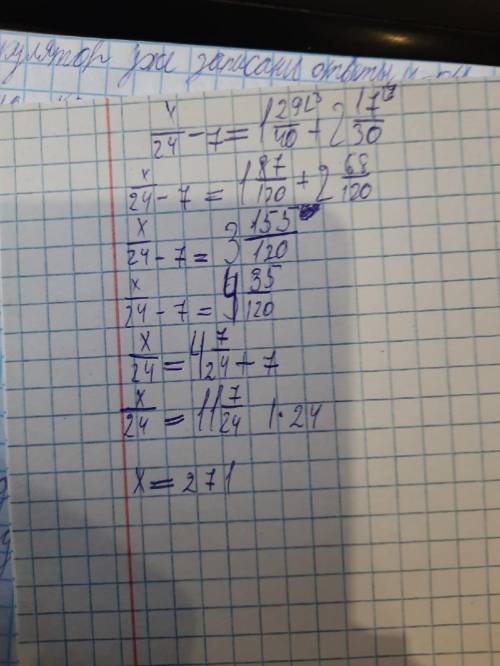 кулятор уже записаны ответы, и
x/24 − 7 = 1 29/40 + 2 17/30
x/24 − 7 = 1 87/120 + 2 68/120
x/24 − 7 = 3 155/120
x/24 − 7 = 4 35/120
x/24 = 4 7/24 + 7
x/24 = 11 7/24 | · 24
x = 271